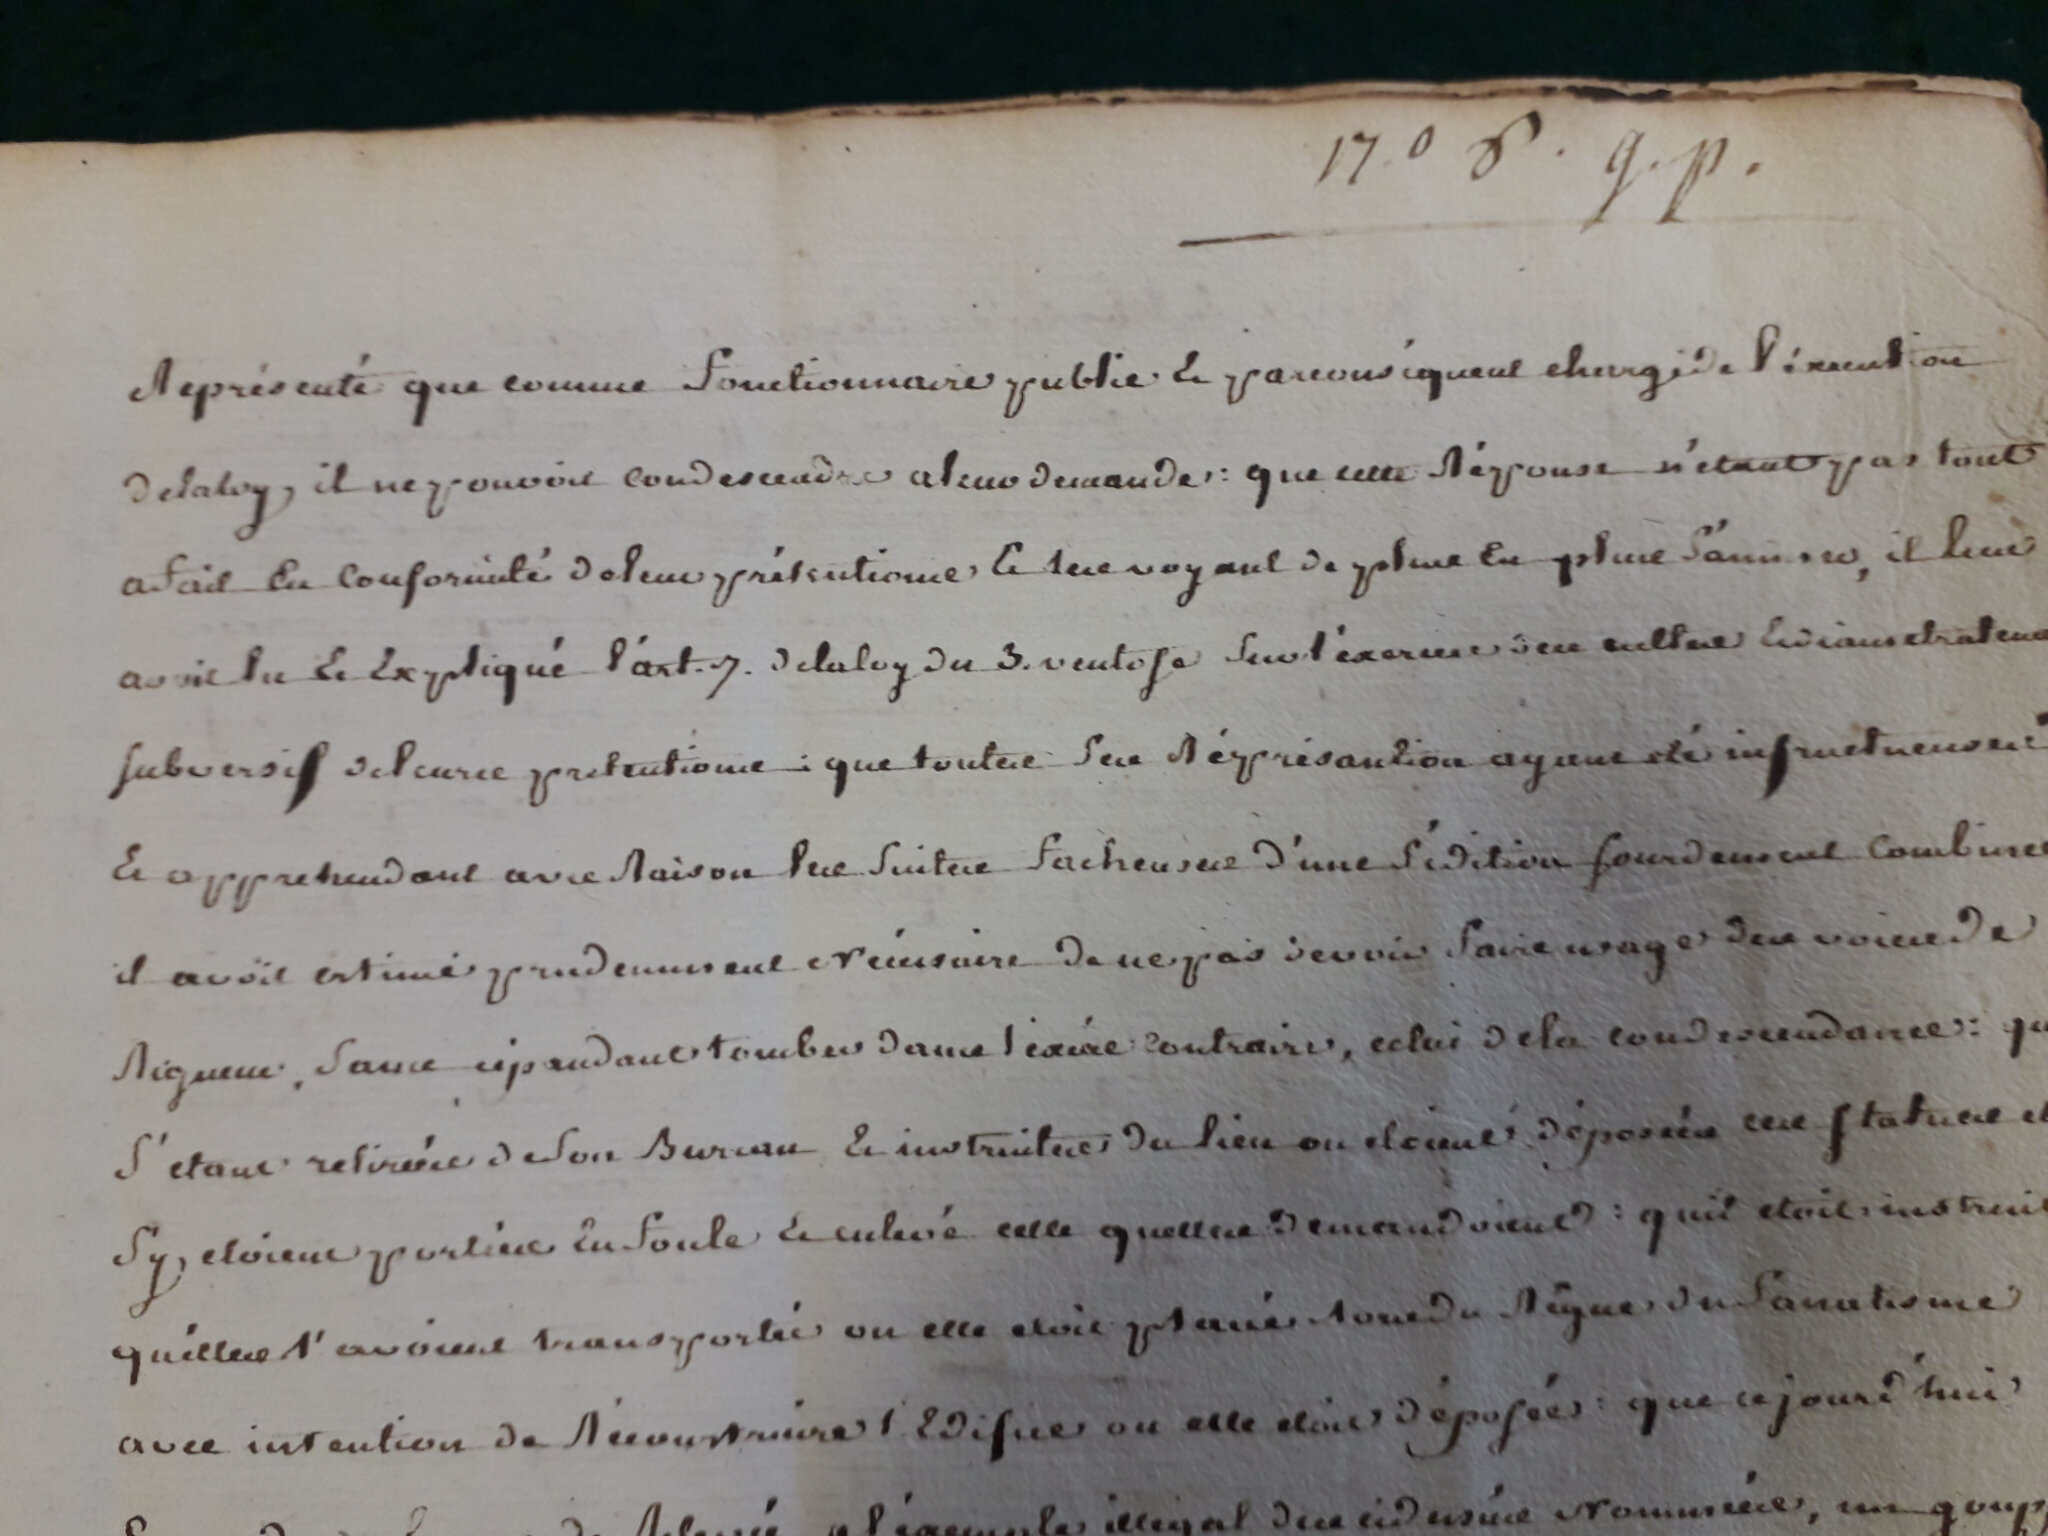 17.º 8. g.p.
Représenté que comme fonctionnaire public & parconséquent chargé de l'éxecution
delaloy, il ne pouvoit condescendre aleur demande: que cette Réponse n'etant pas tout
afait En Conformité deleurs prétentions & les voyant de plus En plus s'animer, il leur
avoit lu & Expliqué l'art. 7. delaloy du 3. ventose sur l'exercice des cultes
subversif deleurs pretentions: que toutes ses Réprésantation ayant été infructueuses
& apprehendant avec Raison les suites facheuses d'une Sédition sourdement Combinée
il avoit estimé prudemment & Nécessaire de ne pas devoir faire usage des voies de
Rigueur, sans cependant tomber dans l'éxcés contraire, celui dela condescendance: qu
s'etant retirées de son Bureau & instruites du lieu ou etoient déposées ces statues et
s'y, etoient portées En foule & enlevé celle quelles demandoient: quil etoit instruit
qu'elles l'avoient transportée ou elle etoit placée lors du Régne du fanatisme
avec intention de Réconstruire l'Edifice ou elle etoit déposée: que cejourd'hui
l'éxemple illégal des cidessus Nommées, un